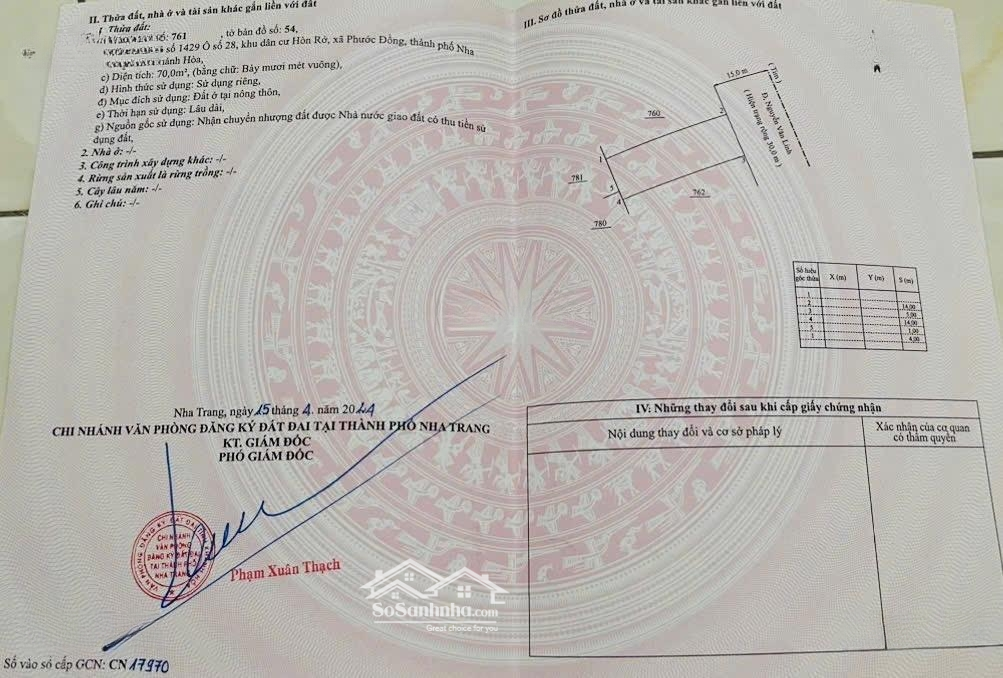 II. Thửa đất, nhà ở và tài sản khác gắn liền với đất
1. Thửa đất:
số: 761 , tờ bản đồ số: 54,
số 1429 Ô số 28, khu dân cư Hòn Rớ, xã Phước Đồng, thành phố Nha
Khánh Hòa,
c) Diện tích: 70,0m², (bằng chữ: Bảy mươi mét vuông),
d) Hình thức sử dụng: Sử dụng riêng,
đ) Mục đích sử dụng: Đất ở tại nông thôn,
e) Thời hạn sử dụng: Lâu dài,
g) Nguồn gốc sử dụng: Nhận chuyển nhượng đất được Nhà nước giao đất có thu tiền sử
dụng đất,
2. Nhà ở: -/-
3. Công trình xây dựng khác: -/-
4. Rừng sản xuất là rừng trồng: -/-
5. Cây lâu năm: -/-
6. Ghi chú: -/-
Nha Trang, ngày 15 tháng 4. năm 2024
CHI NHÁNH VĂN PHÒNG ĐĂNG KÝ ĐẤT ĐAI TẠI THÀNH PHỐ NHA TRANG
KT. GIÁM ĐỐC
PHÓ GIÁM ĐỐC
VĂN PHÒNG ĐĂNG KÝ ĐẤT ĐAI TỈNH KHÁNH HÒA
CHI NHÁNH
VĂN PHÒNG
ĐĂNG KÝ ĐẤT ĐAI
TẠI THÀNH PHỐ
NHA TRANG
Phạm Xuân Thạch
Số vào sổ cấp GCN: CN 17970
III. Sơ đồ thửa đất, nhà ở và tài sản khác gắn liền với đất
15,0 m
(Tim)
Đ. Nguyễn Văn Linh
( Hiện trạng rộng 30,0 m )
760
2
1
3
781
5
4
762
780
Số hiệu góc thửa X (m) Y (m) S (m)
1
2 14,00
3 5,00
4 14,00
5 1,00
1 4,00
IV. Những thay đổi sau khi cấp giấy chứng nhận
Nội dung thay đổi và cơ sở pháp lý
Xác nhận của cơ quan
có thẩm quyền
SoSanhnha.com
Great choice for you